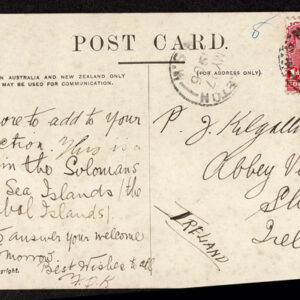 POST CARD.
IN AUSTRALIA AND NEW ZEALAND ONLY
MAY BE USED FOR COMMUNICATION.
(FOR ADDRESS ONLY)
8
ore to add to your
ction. This is a
in the Solomans
Sea Islands (the
bal Islands)
to answer your welcome
omorrow.
Best Wishes to all
F.P.K
P. J. Kilgall
Abbey V
Sli
Irel
IRELAND
pyright.